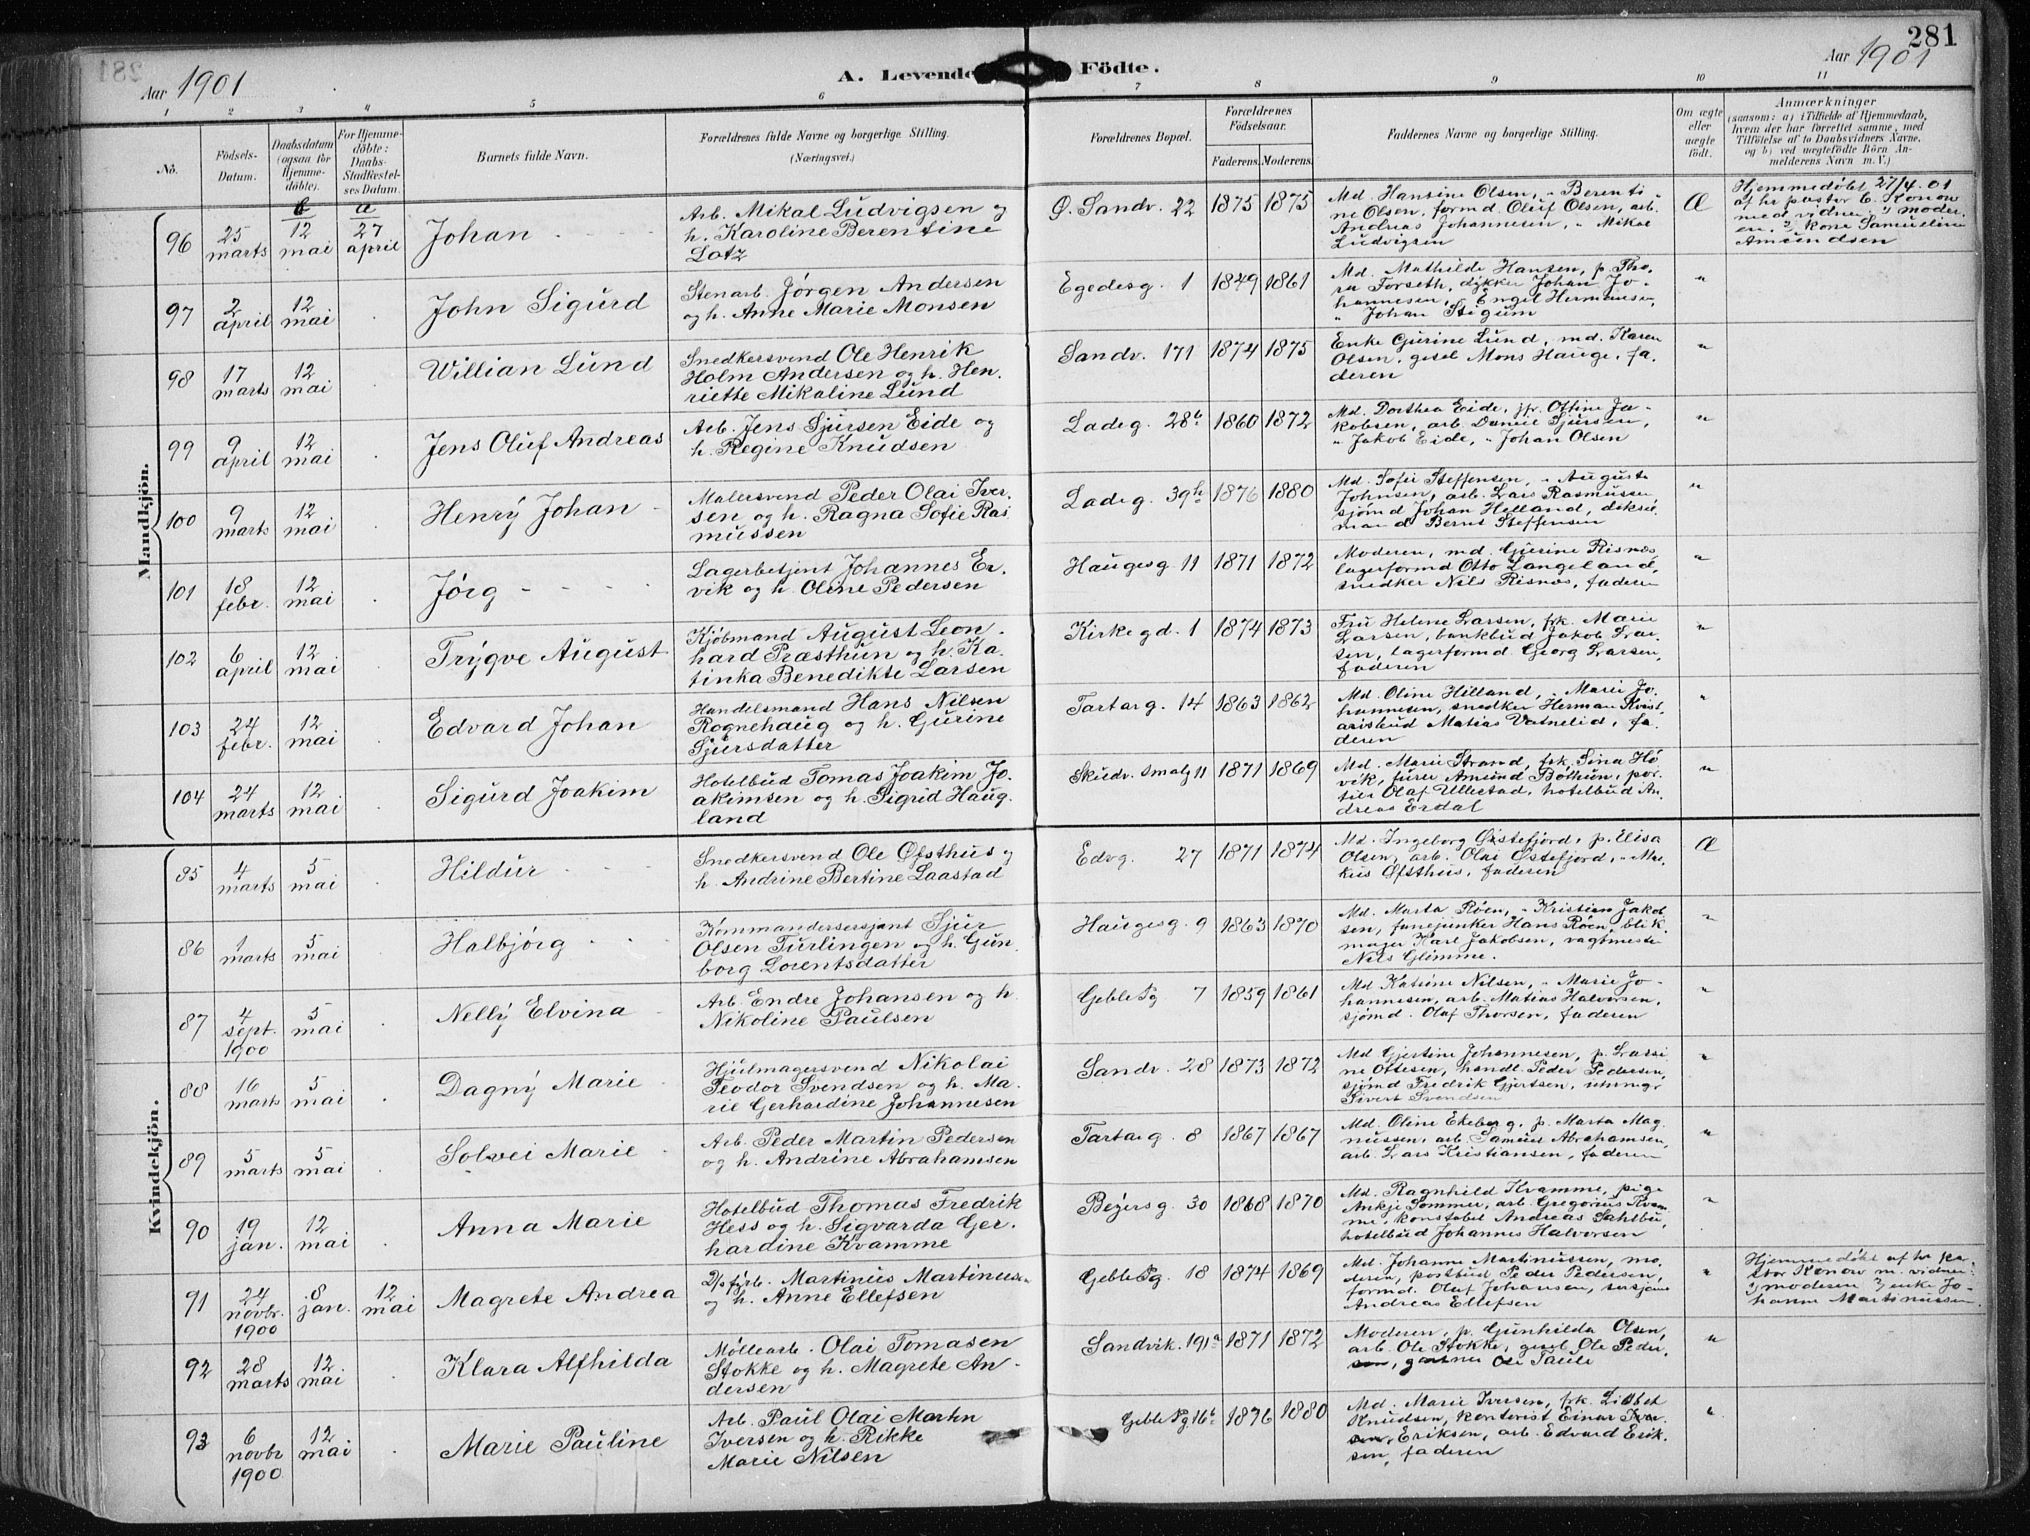 281
Aar 1901
A. Levende Födte.
Aar 1901
1 2 3 4 5 6 7 8 9 10 11
No.
Födsels-Datum.
Daabsdatum (ogsaa for Hjemmedöbte).
For Hjemmedöbte: Daabs-Stadfestelses Datum.
Barnets fulde Navn.
Forældrenes fulde Navne og borgerlige Stilling.
(Næringsvei.)
Forældrenes Bopæl.
Forældrenes Födselsaar.
Faderens. Moderens.
Faddernes Navne og borgerlige Stilling.
Om ægte eller uægte födt.
Anmærkninger
(saasom: a) i Tilfælde af Hjemmedaab, hvem der har forrettet samme, med Tilföielse af to Daabsvidners Navne, og b) ved uægtefödte Börn Anmelderens Navn m. V.)
Mandkjön.
b a
96 25 marts 12 mai 27 april Johan
Arb. Mikal Ludvigsen og
h. Karoline Berentine
Lotz
Ø. Sandv. 22 1875 1875
Md. Hansine Olsen, " Berenti-
ne Olsen, formd. Oluf Olsen, arb.
Andreas Johannesen, " Mikal
Ludvigsen
Æ
Hjemmedøbt 27/4 01
af hr pastor C. Konow
med vidner: 1) moder-
en. 2) kone Samueline
Amundsen
97 2 april 12 mai John Sigurd
Stenarb. Jørgen Andersen
og h. Anne Marie Monsen
Egedesg. 1 1849 1861
Md. Mathilde Hansen, p. Tho-
ra Forseth, dykker Johan Jo-
hannesen, " Engel Hermansen,
" Johan Stigum
"
98 17 marts 12 mai Willian Lund
Snedkersvend Ole Henrik
Holm Andersen og h. Hen-
riette Mikaline Lund
Sandv. 171 1874 1875
Enke Gurine Lund, md. Karen
Olsen, gesel Mons Hauge, fa-
deren
"
99 9 april 12 mai Jens Oluf Andreas
Arb. Jens Sjursen Eide og
h. Regine Knudsen
Ladeg. 28b 1860 1872
Md. Dorthea Eide, jfr. Ottine Ja-
kobsen, arb. Daniel Sjursen,
" Jakob Eide, " Johan Olsen
"
100 9 marts 12 mai Henry Johan
Malersvend Peder Olai Iver-
sen og h. Ragna Sofie Ras
mussen
Ladeg. 39h 1876 1880
Md. Sofie Steffensen, " Augusta
Johnsen, arb. Lars Rasmussen,
sjømd Johan Helland,
mand Bernt Steffensen
"
101 18 febr. 12 mai Jørg
Lagerbetjent Johannes Er-
vik og h. Oline Pedersen
Haugesg. 11 1871 1872
Moderen, md. Gurine Risnæs
lagerformd Otto Langeland,
snedker Nils Risnæs, faderen
"
102 6 april 12 mai Trygve August
Kjøbmand August Leon-
hard Præsthun og h. Ka-
tinka Benedikte Larsen
Kirkegd. 1 1874 1873
Fru Helene Larsen, frk. Marie
Larsen, bankbud Jakob Lar-
sen, lagerformd. Georg Larsen,
faderen
"
103 24 febr. 12 mai Edvard Johan
Handelsmand Hans Nilsen
Rognehaug og h. Gurine
Sjursdatter
Tartarg. 14 1863 1862
Md. Oline Hilland, " Marie Jo-
hannesen, snedker Herman Kvist
avisbud Matias Vatnelid, fa-
deren
"
104 24 marts 12 mai Sigurd Joakim
Hotelbud Tomas Joakim Jo-
akimsen og h. Sigrid Haug-
land
Skudv. Smalg 11 1871 1869
Md. Marie Strand, frk. Sina Hø
vik, furer Amund Bolhun, por-
tier Olaf Ullestad, hotelbud An-
dreas Erdal
"
Kvindekjön.
85 4 marts 5 mai Hildur
Snedkersvend Ole Øfsthus og
h. Andrine Bertine Laastad
Edvg. 27 1871 1874
Md. Ingeborg Østefjord, p. Elisa
Olsen, arb. Olai Østefjord, " Mar-
kus Øfsthus, faderen
Æ
86 1 marts 5 mai Halbjørg
Kommandersersjant Sjur
Olsen Turlingen og h. Gun-
borg Lorentsdatter
Haugesg. 9 1863 1870
Md. Marta Røen, " Kristian Jakob
sen, fanejunker Hans Røen, blik-
mager Karl Jakobsen, vagtmester
Nils Glimme.
"
87 4 sept. 1900 5 mai Nelly Elvina
Arb. Endre Johansen og h.
Nikoline Paulsen
Geble Pg 7 1859 1861
Md Katrine Nilsen, " Marie Jo-
hannesen, arb. Matias Halvorsen,
sjømd. Olaf Thorsen, faderen
"
88 16 marts 5 mai Dagny Marie
Hjulmagersvend Nikolai
Teodor Svendsen og h. Ma-
rie Gerhardine Johannesen
Sandv. 28 1873 1872
Md Gjertine Johannesen, p. Lassi
ne Ottesen, handl. Peder Pedersen,
sjømd Fredrik Gjertsen,
Sivert Svendsen
"
89 5 marts 5 mai Solvei Marie
Arb. Peder Martin Pedersen
og h. Andrine Abrahamsen
Tartarg. 8 1867 1867
Md. Oline Ekeberg, p. Marta Mag-
nussen, arb. Samuel Abrahamsen,
arb. Lars Kristiansen, faderen
"
90 19 jan. 12 mai Anna Marie
Hotelbud Thomas Fredrik
Hess og h. Sigvarda Ger-
hardine Kvamme
Beyersg. 30 1868 1870
Md. Ragnhild Kvamme, pige
Ankje Sommer, arb. Gregorius Kvam-
me, konstabel Andreas Dahlbu,
hotelbud Johannes Halvorsen
"
91 24 novbr. 1900 8 jan. 12 mai Magrete Andrea
D/sfyrb. Martinus Martinusen
og h. Anne Ellefsen
Geble Pg. 18 1874 1869
Md. Johanne Martinussen, mo-
deren, postbud Peder Pedersen,
formd. Oluf Johansen, sersjant
Andreas Ellefsen
"
Hjemmedøbt af hr pa-
stor Konow m. vidner:
1) moderen 2) enke Jo-
hanne Martinussen
92 28 marts 12 mai Klara Alfhilda
Møllearb. Olai Tomasen
Stokke og h. Magrete An-
dersen
Sandvik. 191a 1871 1872
Moderen, p. Gunhilda Olsen,
arb. Ole Stokke, gesel Ole Peder-
sen, gartner Ole Taule
"
93 6 novbr 1900 12 mai Marie Pauline
Arb. Paul Olai Martin
Iversen og h. Rikke
Marie Nilsen
Geble Pg 16b 1876 1880
Md. Marie Iversen, frk. Lisbet
Knudsen, kontorist Einar Iver-
sen, Eriksen, arb. Edvard Erik-
sen, faderen
"